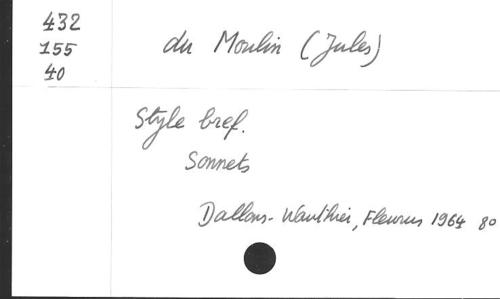 432
155
40
du Moulin (Jules)
Style bref.
Sonnets
Dallons-Wauthier, Fleurus 1964 80